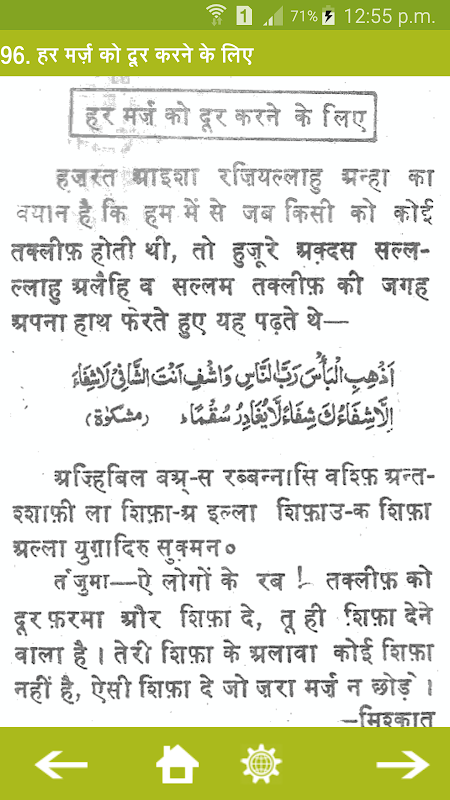 1 71% 12:55 p.m.
96. हर मर्ज़ को दूर करने के लिए
हर मर्ज़ को दूर करने के लिए
हज़रत आइशा रज़ियल्लाहु अन्हा का
बयान है कि हम में से जब किसी को कोई
तक्लीफ़ होती थी, तो हुज़ूरे अक़्दस सल्ल-
ल्लाहु अलैहि व सल्लम तक्लीफ़ की जगह
अपना हाथ फेरते हुए यह पढ़ते थे—
اَذْهِبِ الْبَأْسَ رَبَّ النَّاسِ وَاشْفِ اَنْتَ الشَّافِیْ لَا شِفَاءَ
اِلَّا شِفَاءُكَ شِفَاءً لَّا یُغَادِرُ سُقْمًا (مشکوٰۃ)
अज़्हिबिल बअ्-स रब्बन्नासि वश्फ़ि अन्त-
श्शाफ़ी ला शिफ़ा-अ इल्ला शिफ़ाउ-क शिफ़ा
अल्ला युग़ादिरु सुक़्मन०
तर्जुमा—ऐ लोगों के रब ! तक्लीफ़ को
दूर फ़रमा और शिफ़ा दे, तू ही शिफ़ा देने
वाला है । तेरी शिफ़ा के अलावा कोई शिफ़ा
नहीं है, ऐसी शिफ़ा दे जो ज़रा मर्ज़ न छोड़े ।
—मिश्कात